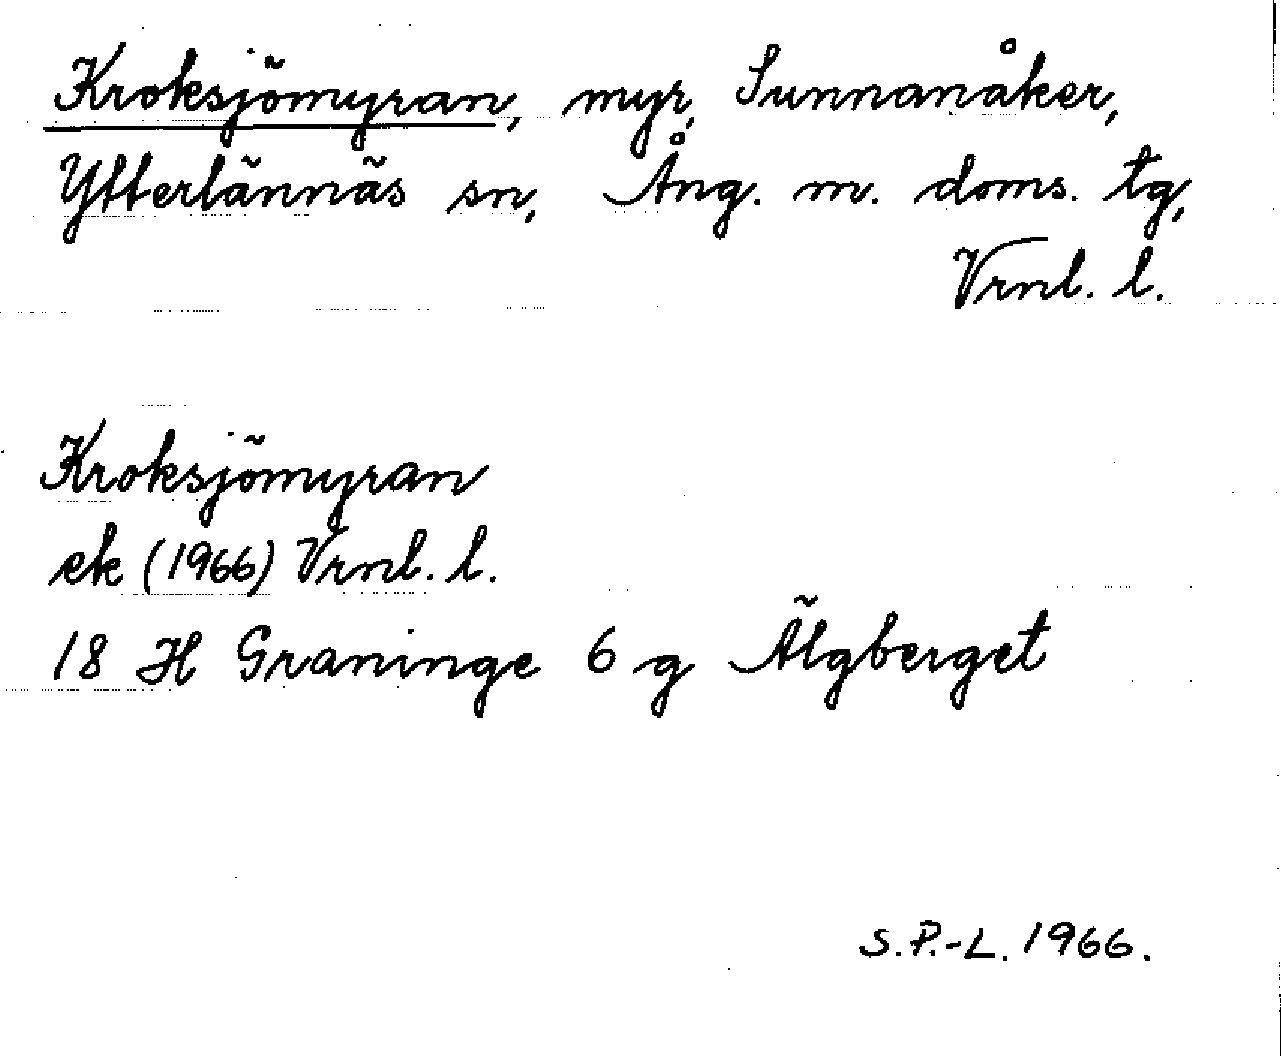 Kroksjömyran, myr, Sunnanåker,
Ytterlännäs sn, Ång. m. doms. tg,
Vrnl. l.
Kroksjömyran
ek (1966) Vrnl. l.
18 H Graninge 6 g Älgberget
S.P.-L. 1966.